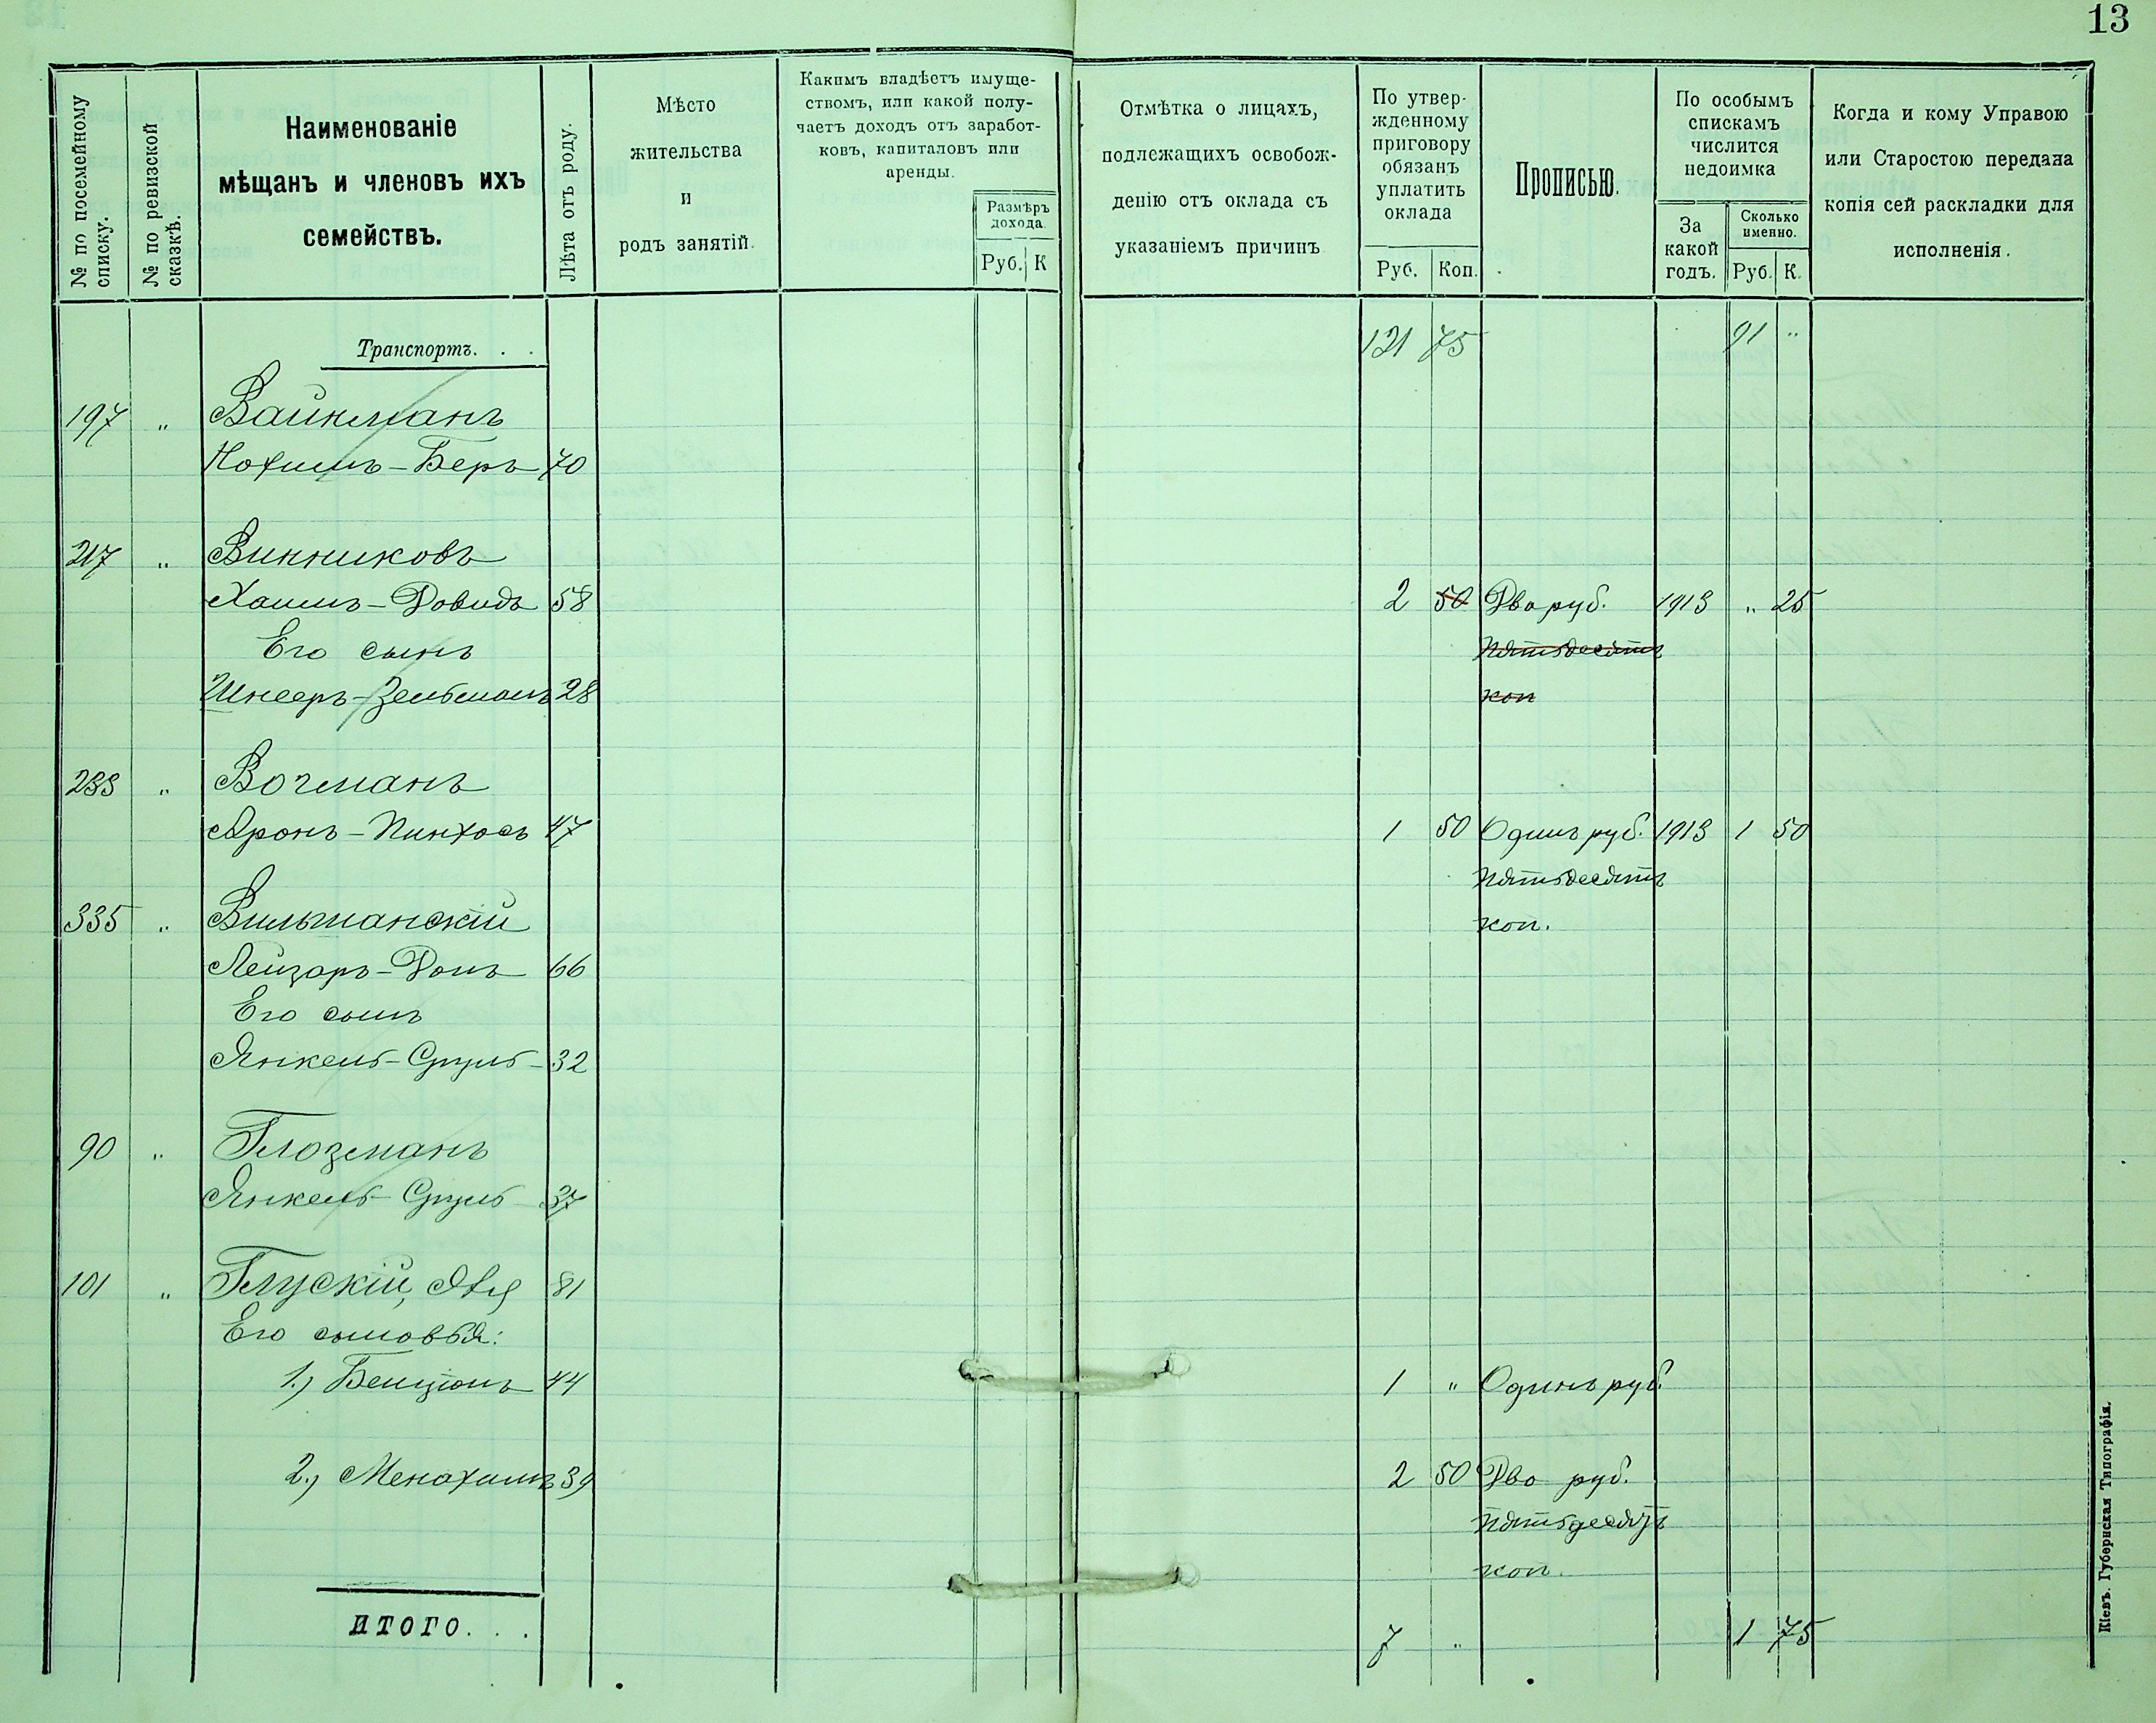 13
№ по посемейному списку.
№ по ревизской сказкѣ.
Наименованіе
мѣщанъ и членовъ ихъ
семействъ.
Лѣта отъ роду.
Мѣсто
жительства
и
родъ занятій.
Какимъ владѣетъ имуще-
ствомъ, или какой полу-
чаетъ доходъ отъ заработ-
ковъ, капиталовъ или
аренды.
Размѣръ
дохода.
Руб. К
Отмѣтка о лицахъ,
подлежащихъ освобож-
денію отъ оклада съ
указаніемъ причинъ
По утвер-
жденному
приговору
обязанъ
уплатить
оклада
Руб. Коп.
Прописью.
По особымъ
спискамъ
числится
недоимка
За
какой
годъ.
Сколько
именно.
Руб. К.
Когда и кому Управою
или Старостою передана
копія сей раскладки для
исполненія.
Транспортъ. . . 121 75 91 "
197 " Вайнманъ
Нохимъ-Беръ 70
217 " Винниковъ
Хаимъ-Довидъ 58 2 50 Два руб. 1913 " 25
Его сынъ пятьдесятъ
Шнееръ-Зельманъ 28 коп
233 " Вочманъ
Аронъ-Пинхосъ 47 1 50 Одинъ руб. 1913 1 50
пятьдесятъ
335 " Вильманскій коп.
Лейзаръ-Донъ 66
Его сынъ
Янкель-Сруль - 32
90 " Глозманъ
Янкель-Сруль - 37
101 " Глускій, Авя 81
Его сыновья:
1.) Бенціонъ 44 1 " Одинъ руб.
2.) Менахимъ 39 2 50 Два руб.
пятьдесятъ
коп.
ИТОГО. . . 7 " 1 75
Кіевъ. Губернская Типографія.